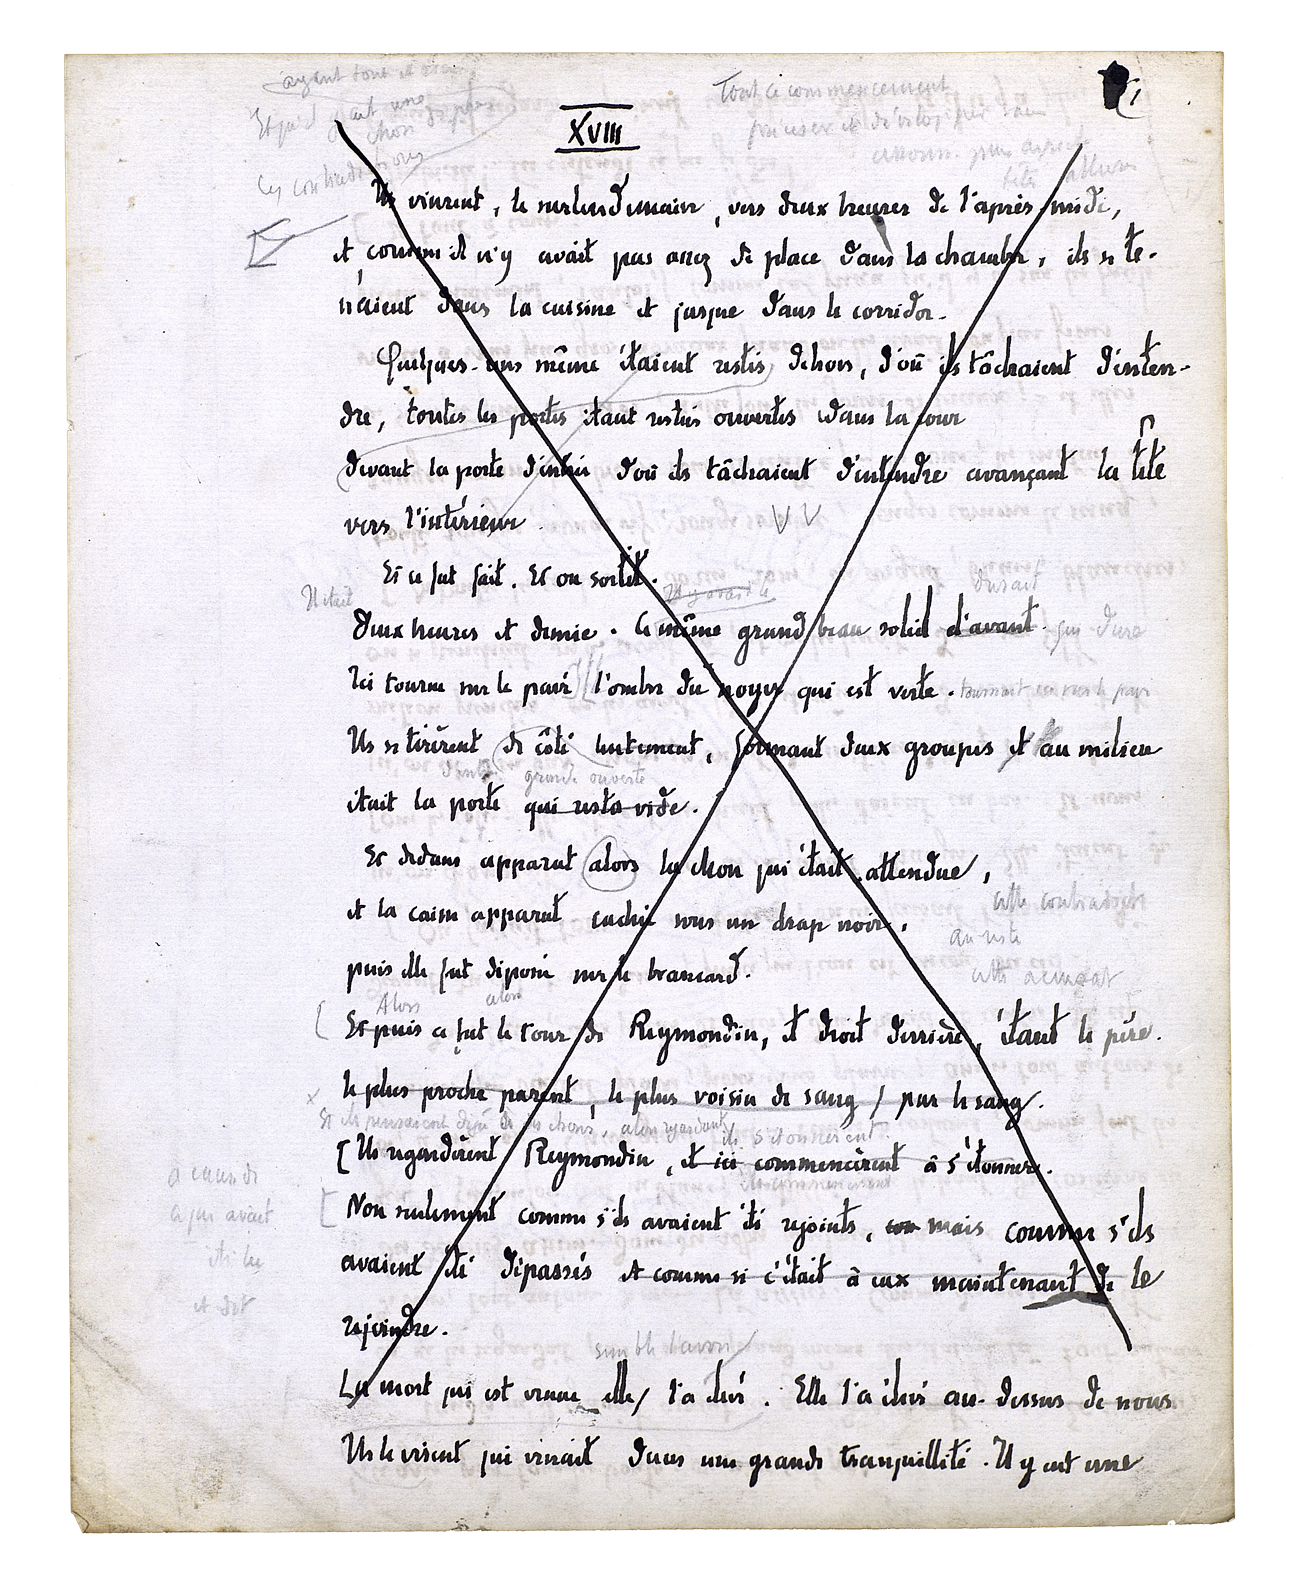 Tout ce commencement
XVIII
Ils vinrent, le surlendemain, vers deux heures de l'après-midi,
et comme il n'y avait pas assez de place dans la chambre, ils se te-
naient dans la cuisine et jusque dans le corridor.
Quelques-uns même étaient restés dehors, d'où ils tâchaient d'enten-
dre, toutes les portes étant restées ouvertes dans la cour
devant la porte d'entrée d'où ils tâchaient d'entendre avançant la tête
vers l'intérieur.
Et ce fut fait. Et on sortit.
Il était
durait
Deux heures et demie. Ce même grand beau soleil d'avant. qui dure
Ici tourne sur le pavé l'ombre du noyer qui est verte. tournait ici sur le pavé
Ils se tirèrent de côté lentement, formant deux groupes et au milieu
grande ouverte
était la porte qui resta vide.
Et dedans apparut alors la chose qui était attendue,
et la caisse apparut cachée sous un drap noir,
au reste
puis elle fut déposée sur le brancard.
Alors alors
Et puis ce fut le tour de Reymondin, et droit derrière, étant le père.
le plus proche parent, le plus voisin de sang / par le sang.
Et ils pensaient déjà à des choses, alors regardant
ils s'étonnèrent
[Ils regardèrent Reymondin, et ici commencèrent à s'étonner.
ils commencèrent
à cause de
ce qui avait
été lu
et dit
[Non seulement comme s'ils avaient été rejoints, mais comme s'ils
avaient été dépassés et comme si c'était à eux maintenant de le
rejoindre.
semble l'avoir
La mort qui est venue elle / l'a élevé. Elle l'a élevé au-dessus de nous
Ils le virent qui venait dans une grande tranquillité. Il y eut une